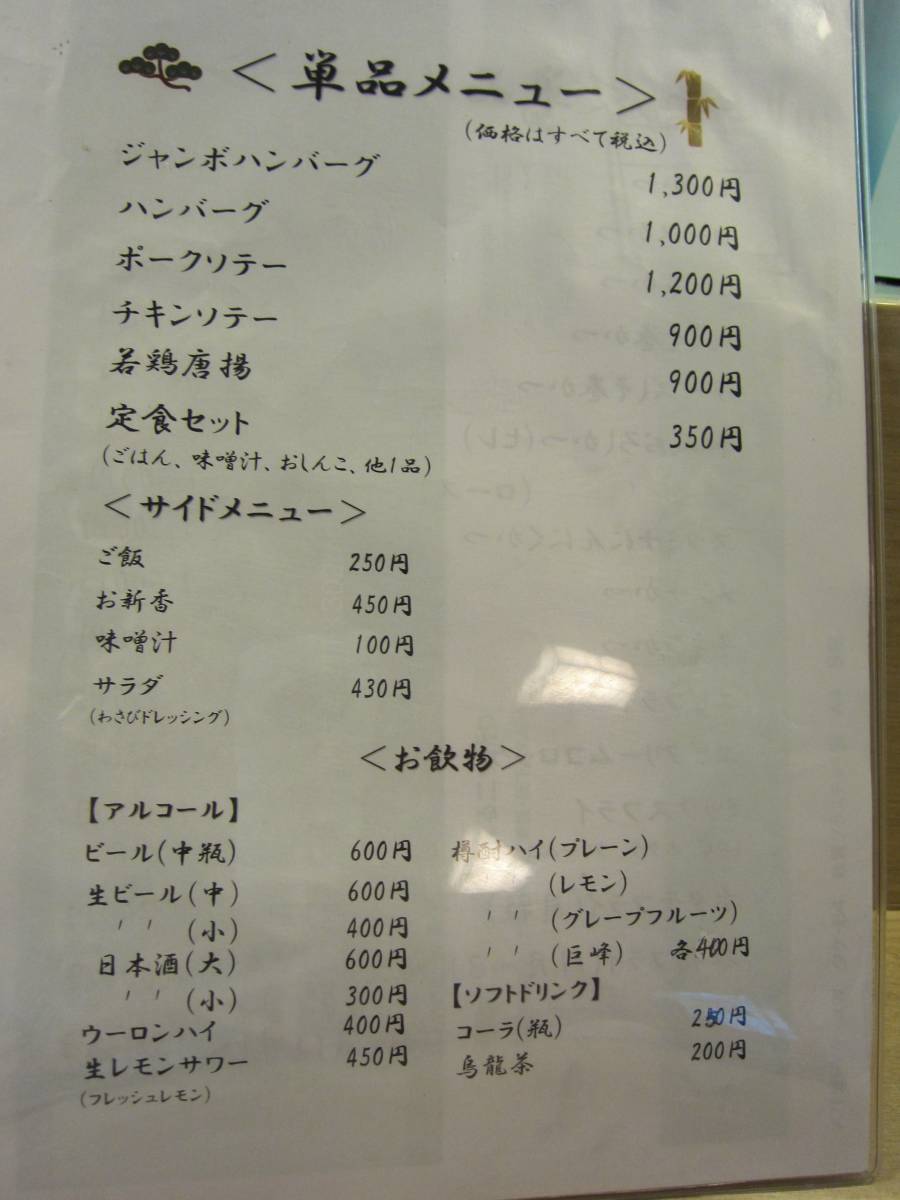 ＜単品メニュー＞
(価格はすべて税込)
ジャンボハンバーグ 1,300円
ハンバーグ 1,000円
ポークソテー 1,200円
チキンソテー 900円
若鶏唐揚 900円
定食セット 350円
(ごはん、味噌汁、おしんこ、他1品)
＜サイドメニュー＞
ご飯 250円
お新香 450円
味噌汁 100円
サラダ 430円
(わさびドレッシング)
＜お飲物＞
【アルコール】
ビール(中瓶) 600円
生ビール(中) 600円
〃 〃 (小) 400円
日本酒(大) 600円
〃 〃 (小) 300円
ウーロンハイ 400円
生レモンサワー 450円
(フレッシュレモン)
樽酎ハイ(プレーン)
〃 〃 (レモン)
〃 〃 (グレープフルーツ)
〃 〃 (巨峰) 各400円
【ソフトドリンク】
コーラ(瓶) 250円
烏龍茶 200円